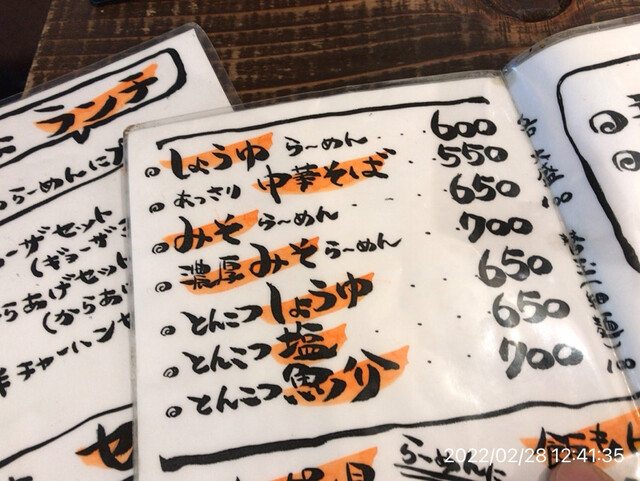 ランチ
らーめんに
しょうゆ らーめん 600
あっさり 中華そば 550
みそ らーめん 650
濃厚 みそ らーめん 700
とんこつ しょうゆ 650
とんこつ 塩 650
とんこつ 魚介 700
ーザセット
(ギョーザ
らあげセット
(からあげ
チャーハン
セ
らーめんに
2022/02/28 12:41:35